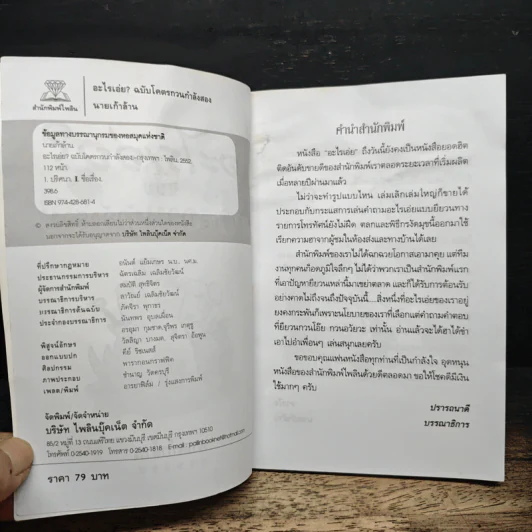 สำนักพิมพ์ไพลิน
อะไรเอ่ย? ฉบับโคตรกวนกำลังสอง
นายเก้าล้าน
ข้อมูลทางบรรณานุกรมของหอสมุดแห่งชาติ
นายเก้าล้าน
อะไรเอ่ย? ฉบับโคตรกวนกำลังสอง.--กรุงเทพฯ : ไพลิน, 2552.
112 หน้า
1. ปริศนา. I. ชื่อเรื่อง.
398.6
ISBN 974-428-681-4
© สงวนลิขสิทธิ์ ห้ามลอกเลียนไม่ว่าส่วนหนึ่งส่วนใดของหนังสือ
นอกจากจะได้รับอนุญาตจาก บริษัท ไพลินบุ๊คเน็ต จำกัด
ที่ปรึกษากฎหมาย
ประธานกรรมการบริหาร
ผู้จัดการสำนักพิมพ์ สมบัติ
บรรณาธิการบริหาร
บรรณาธิการต้นฉบับ
ประจำกองบรรณาธิการ
พิสูจน์อักษร
ออกแบบปก
ศิลปกรรม
ภาพประกอบ ชำนาญ
เพลต/พิมพ์ อารยาฟิล์ม / รุ่งแสงการพิมพ์
จัดพิมพ์/จัดจำหน่าย
บริษัท ไพลินบุ๊คเน็ต จำกัด
85/2 หมู่ที่ 13 ถนนเสรีไทย แขวงมีนบุรี เขตมีนบุรี กรุงเทพฯ 10510
โทรศัพท์ 0-2540-1919 โทรสาร 0-2540-1818 E-mail : pailinbooknet@hotmail.com
ราคา 79 บาท
คำนำสำนักพิมพ์
หนังสือ "อะไรเอ่ย" ถึงวันนี้ยังคงเป็นหนังสือยอดฮิต
ติดอันดับขายดีของสำนักพิมพ์เราตลอดระยะเวลาที่เริ่มผลิต
เมื่อหลายปีผ่านมาแล้ว
ไม่ว่าจะทำรูปแบบไหน เล่มเล็กเล่มใหญ่ก็ขายได้
ประกอบกับกระแสการเล่นคำถามอะไรเอ่ยแบบยียวนทาง
รายการโทรทัศน์ยังไม่ผืด ตลกและพิธีกรวัดมุขนี้ออกมาใช้
เรียกความฮาจากผู้ชมในห้องส่งและทางบ้านได้เลย
สำนักพิมพ์ของเราไม่ได้ฉกฉวยโอกาสเอามาคุย แต่ทีม
งานทุกคนก็อดภูมิใจลึกๆ ไม่ได้ว่าพวกเราเป็นสำนักพิมพ์แรก
ที่เอาปัญหายียวนเหล่านี้มาเขย่าตลาด และก็ได้รับการต้อนรับ
อย่างคาดไม่ถึงจนถึงปัจจุบันนี้....สิ่งหนึ่งที่อะไรเอ่ยของเราอยู่
ยงคงกระพันก็เพราะนโยบายของเราที่เลือกแต่คำถามคำตอบ
ที่ยียวนกวนโอ๊ย กวนอวัยวะ เท่านั้น อ่านแล้วจะได้ฮาได้ขำ
เอาไปอำเพื่อนๆ เล่นสนุกเลยครับ
ขอขอบคุณแฟนหนังสือทุกท่านที่เป็นกำลังใจ อุดหนุน
หนังสือของสำนักพิมพ์ไพลินด้วยดีตลอดมา ขอให้โชคดีมีเงิน
ใช้มากๆ ครับ
ปรารถนาดี
บรรณาธิการ